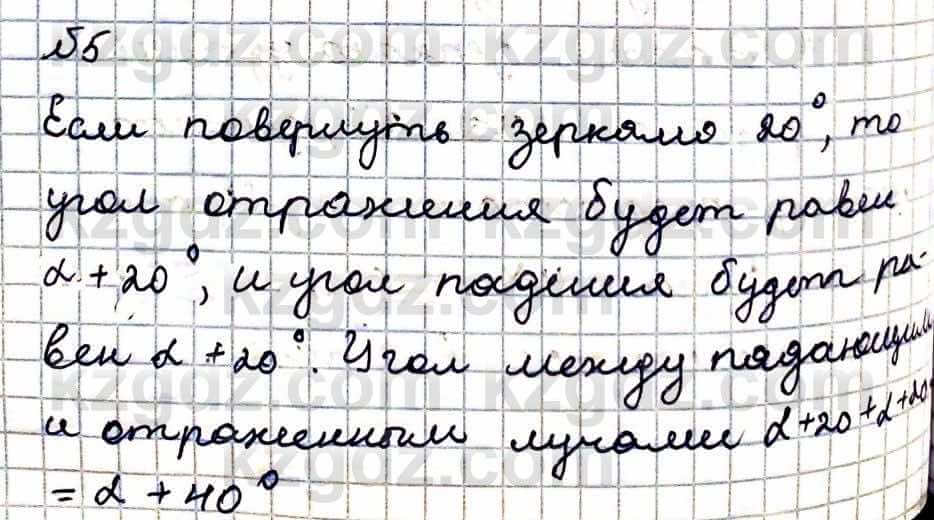 №5
Если повернуть зеркало 20°, то
угол отражения будет равен
α + 20°, и угол падения будет ра-
вен α + 20°. Угол между падающим
и отраженным лучами α+20+α+20°
= α + 40°
kzgdz.com